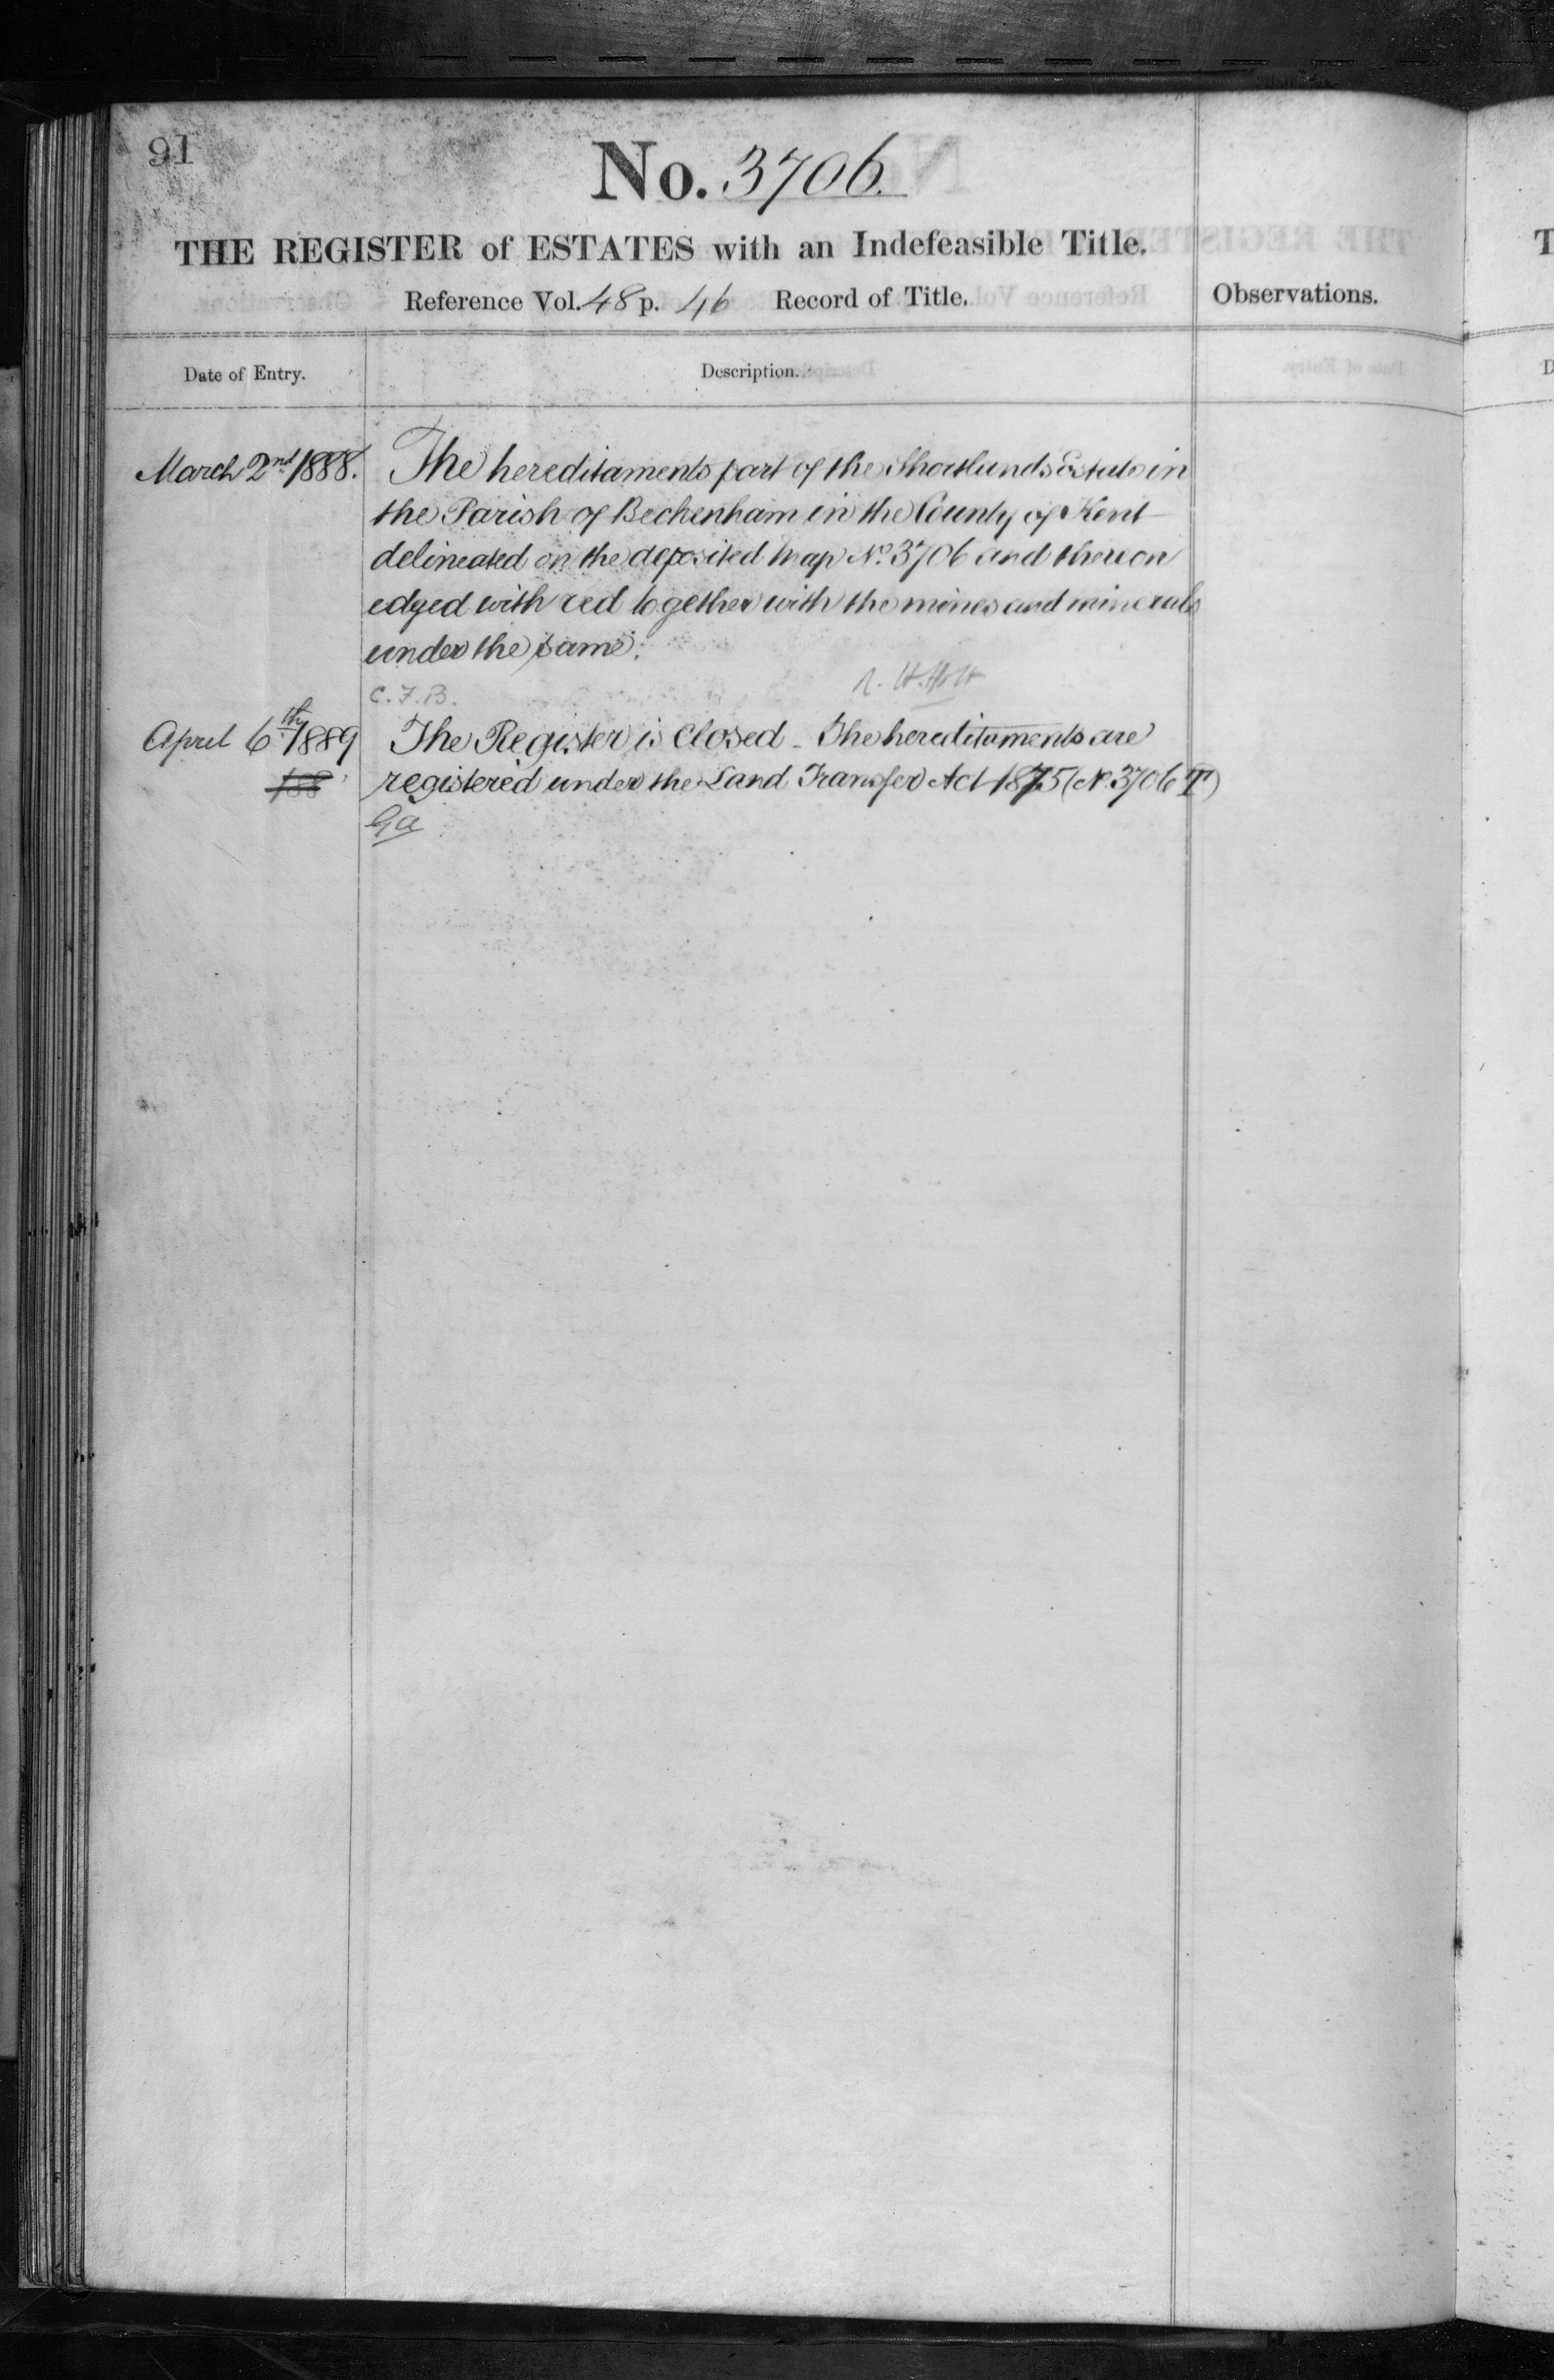 91
No. 3706.
THE REGISTER of ESTATES with an Indefeasible Title.
Reference Vol. 48 p. 46 Record of Title.
Observations.
Date of Entry.
Description.
March 2nd 1888. The hereditaments part of the Shortlands Estate in
the Parish of Beckenham in the County of Kent
delineated on the deposited Map No. 3706 and thereon
edged with red together with the mines and minerals
under the same.
C.F.B.
April 6th 1889 The Register is Closed - The hereditaments are
188 registered under the Land Transfer Act 1875 (No. 3706 T)